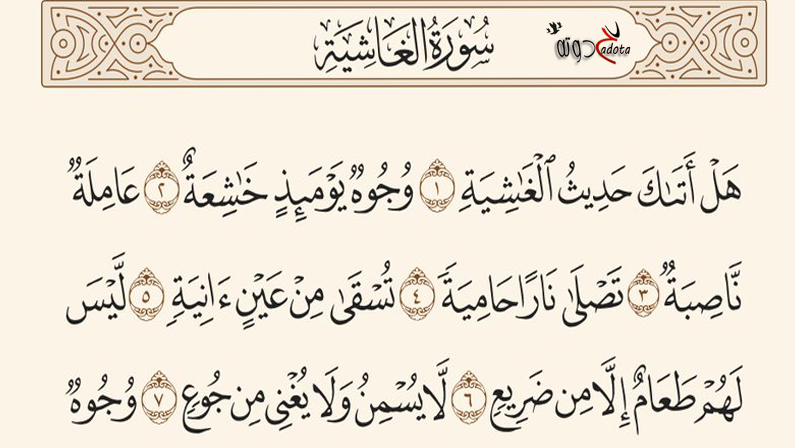 سُورَةُ الغَاشِيَةِ
حدوته adota
هَلْ أَتَىٰكَ حَدِيثُ ٱلْغَٰشِيَةِ ١ وُجُوهٌ يَوْمَئِذٍ خَٰشِعَةٌ ٢ عَامِلَةٌ
نَّاصِبَةٌ ٣ تَصْلَىٰ نَارًا حَامِيَةً ٤ تُسْقَىٰ مِنْ عَيْنٍ ءَانِيَةٍ ٥ لَّيْسَ
لَهُمْ طَعَامٌ إِلَّا مِن ضَرِيعٍ ٦ لَّا يُسْمِنُ وَلَا يُغْنِى مِن جُوعٍ ٧ وُجُوهٌ